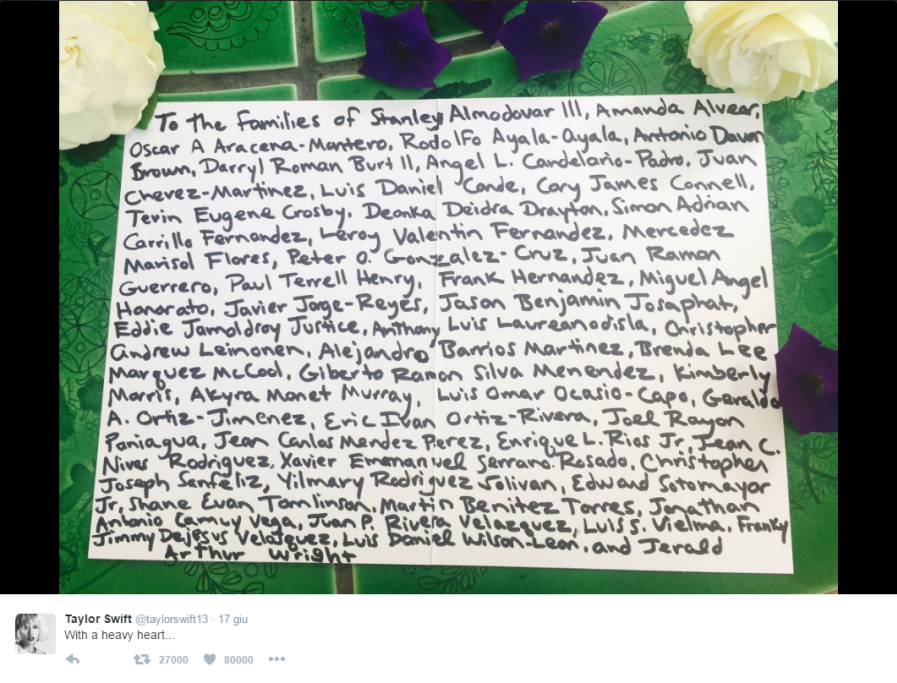 To the Families of Stanley Almodovar III, Amanda Alvear,
Oscar A Aracena-Montero, Rodolfo Ayala-Ayala, Antonio Davon
Brown, Darryl Roman Burt II, Angel L. Candelario-Padro, Juan
Chevez-Martinez, Luis Daniel Conde, Cory James Connell,
Tevin Eugene Crosby, Deonka Deidra Drayton, Simon Adrian
Carrillo Fernandez, Leroy Valentin Fernandez, Mercedez
Marisol Flores, Peter O. Gonzalez-Cruz, Juan Ramon
Guerrero, Paul Terrell Henry, Frank Hernandez, Miguel Angel
Honorato, Javier Jorge-Reyes, Jason Benjamin Josaphat,
Eddie Jamoldroy Justice, Anthony Luis Laureanodisla, Christopher
Andrew Leinonen, Alejandro Barrios Martinez, Brenda Lee
Marquez McCool, Giberto Ramon Silva Menendez, Kimberly
Morris, Akyra Monet Murray, Luis Omar Ocasio-Capo, Geraldo
A. Ortiz-Jimenez, Eric Ivan Ortiz-Rivera, Joel Rayon
Paniagua, Jean Carlos Mendez Perez, Enrique L. Rios Jr, Jean C.
Nives Rodriguez, Xavier Emmanuel Serrano.Rosado, Christopher
Joseph Sanfeliz, Yilmary Rodriguez Solivan, Edward Sotomayor
Jr, Shane Evan Tomlinson, Martin Benitez Torres, Jonathan
Antonio Camuy Vega, Juan P. Rivera Velazquez, Luis S. Vielma, Franky
Jimmy Dejesus Velazquez, Luis Daniel Wilson-Leon, and Jerald
Arthur Wright
Taylor Swift @taylorswift13 · 17 giu
With a heavy heart...
27000 80000